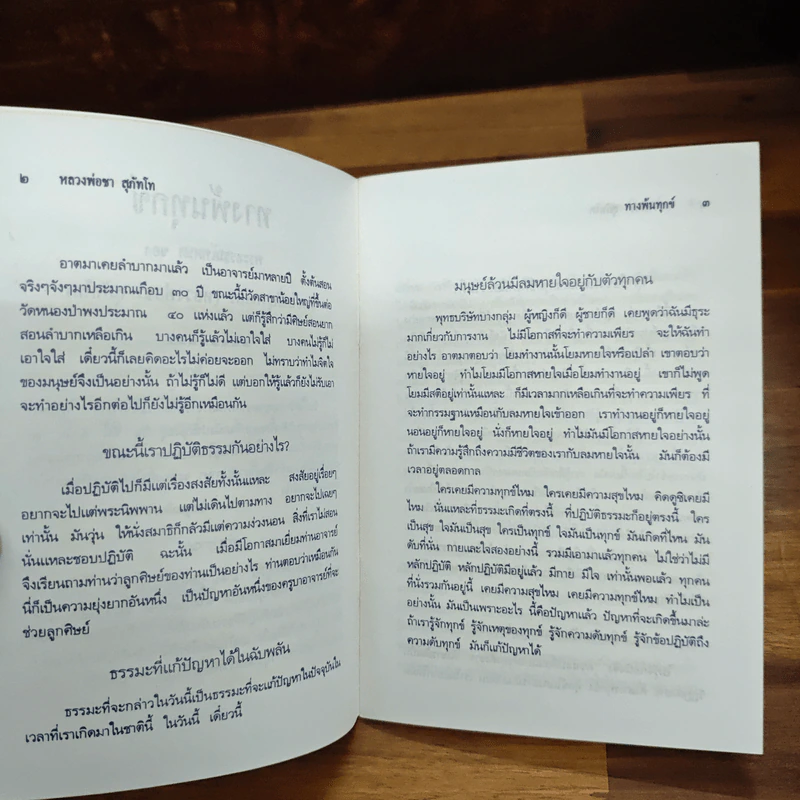 ๒ หลวงพ่อชา สุภัทโท
อาตมาเคยลำบากมาแล้ว เป็นอาจารย์มาหลายปี ตั้งต้นสอน
จริงๆจังๆมาประมาณเกือบ ๓๐ ปี ขณะนี้มีวัดสาขาน้อยใหญ่ที่ขึ้นต่อ
วัดหนองป่าพงประมาณ ๔๐ แห่งแล้ว แต่ก็รู้สึกว่ามีศิษย์สอนยาก
สอนลำบากเหลือเกิน บางคนก็รู้แล้วไม่เอาใจใส่ บางคนไม่รู้ก็ไม่
เอาใจใส่ เดี๋ยวนี้ก็เลยคิดอะไรไม่ค่อยจะออก ไม่ทราบว่าทำไมจิตใจ
ของมนุษย์จึงเป็นอย่างนั้น ถ้าไม่รู้ก็ไม่ดี แต่บอกให้รู้แล้วก็ยังไม่รับเอา
จะทำอย่างไรอีกต่อไปก็ยังไม่รู้อีกเหมือนกัน
ขณะนี้เราปฏิบัติธรรมกันอย่างไร?
เมื่อปฏิบัติไปก็มีแต่เรื่องสงสัยทั้งนั้นแหละ สงสัยอยู่เรื่อยๆ
อยากจะไปแต่พระนิพพาน แต่ไม่เดินไปตามทาง อยากจะไปเฉยๆ
เท่านั้น มันวุ่น ให้นั่งสมาธิก็กลัวมีแต่ความง่วงนอน สิ่งที่เราไม่สอน
นั่นแหละชอบปฏิบัติ ฉะนั้น เมื่อมีโอกาสมาเยี่ยมท่านอาจารย์
จึงเรียนถามท่านว่าลูกศิษย์ของท่านเป็นอย่างไร ท่านตอบว่าเหมือนกัน
นี่ก็เป็นความยุ่งยากอันหนึ่ง เป็นปัญหาอันหนึ่งของครูบาอาจารย์ที่จะ
ช่วยลูกศิษย์
ธรรมะที่แก้ปัญหาได้ในฉับพลัน
ธรรมะที่จะกล่าวในวันนี้เป็นธรรมะที่จะแก้ปัญหาในปัจจุบันใน
เวลาที่เราเกิดมาในชาตินี้ ในวันนี้ เดี๋ยวนี้
ทางพ้นทุกข์ ๓
มนุษย์ล้วนมีลมหายใจอยู่กับตัวทุกคน
พุทธบริษัทบางกลุ่ม ผู้หญิงก็ดี ผู้ชายก็ดี เคยพูดว่าฉันมีธุระ
มากเกี่ยวกับการงาน ไม่มีโอกาสที่จะทำความเพียร จะให้ฉันทำ
อย่างไร อาตมาตอบว่า โยมทำงานนั้นโยมหายใจหรือเปล่า เขาตอบว่า
หายใจอยู่ ทำไมโยมมีโอกาสหายใจเมื่อโยมทำงานอยู่ เขาก็ไม่พูด
โยมมีสติอยู่เท่านั้นแหละ ก็มีเวลามากเหลือเกินที่จะทำความเพียร ที่
จะทำกรรมฐานเหมือนกับลมหายใจเข้าออก เราทำงานอยู่ก็หายใจอยู่
นอนอยู่ก็หายใจอยู่ นั่งก็หายใจอยู่ ทำไมมันมีโอกาสหายใจอย่างนั้น
ถ้าเรามีความรู้สึกถึงความมีชีวิตของเรากับลมหายใจนั้น มันก็ต้องมี
เวลาอยู่ตลอดกาล
ใครเคยมีความทุกข์ไหม ใครเคยมีความสุขไหม คิดดูซิเคยมี
ไหม นั่นแหละที่ธรรมะเกิดที่ตรงนี้ ที่ปฏิบัติธรรมะก็อยู่ตรงนี้ ใคร
เป็นสุข ใจมันเป็นสุข ใครเป็นทุกข์ ใจมันเป็นทุกข์ มันเกิดที่ไหน มัน
ดับที่นั่น กายและใจสองอย่างนี้ รวมมีเอามาแล้วทุกคน ไม่ใช่ว่าไม่มี
หลักปฏิบัติ หลักปฏิบัติมีอยู่แล้ว มีกาย มีใจ เท่านั้นพอแล้ว ทุกคน
ที่นั่งรวมกันอยู่นี้ เคยมีความสุขไหม เคยมีความทุกข์ไหม ทำไมเป็น
อย่างนั้น มันเป็นเพราะอะไร นี้คือปัญหาแล้ว ปัญหาที่จะเกิดขึ้นมาล่ะ
ถ้าเรารู้จักทุกข์ รู้จักเหตุของทุกข์ รู้จักความดับทุกข์ รู้จักข้อปฏิบัติถึง
ความดับทุกข์ มันก็แก้ปัญหาได้